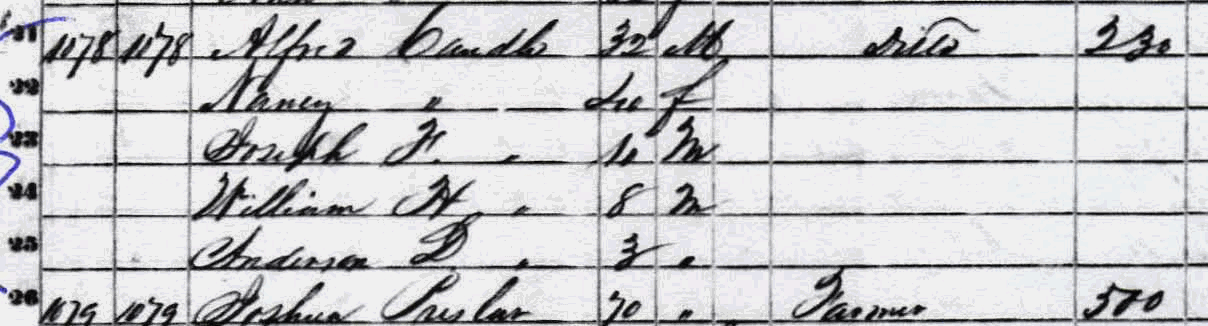 21 1078 1078 Alfred Caudle 32 M ditto 230
22 Nancy " 40 f
23 Joseph F. " 10 M
24 William H " 8 M
25 Anderson D " 3 "
26 1079 1079 Joshua Preslar 70 " Farmer 500